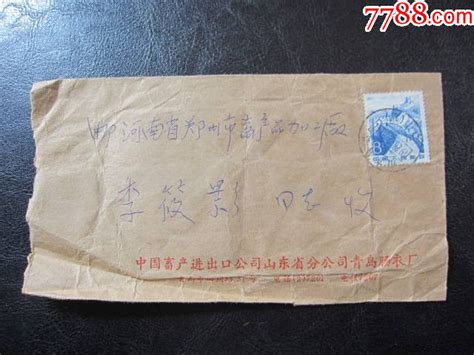 7788.com
邮 河南省郑州市畜产品加工厂
8
李筱影 同志 收
中国畜产进出口公司山东省分公司青岛肠衣厂